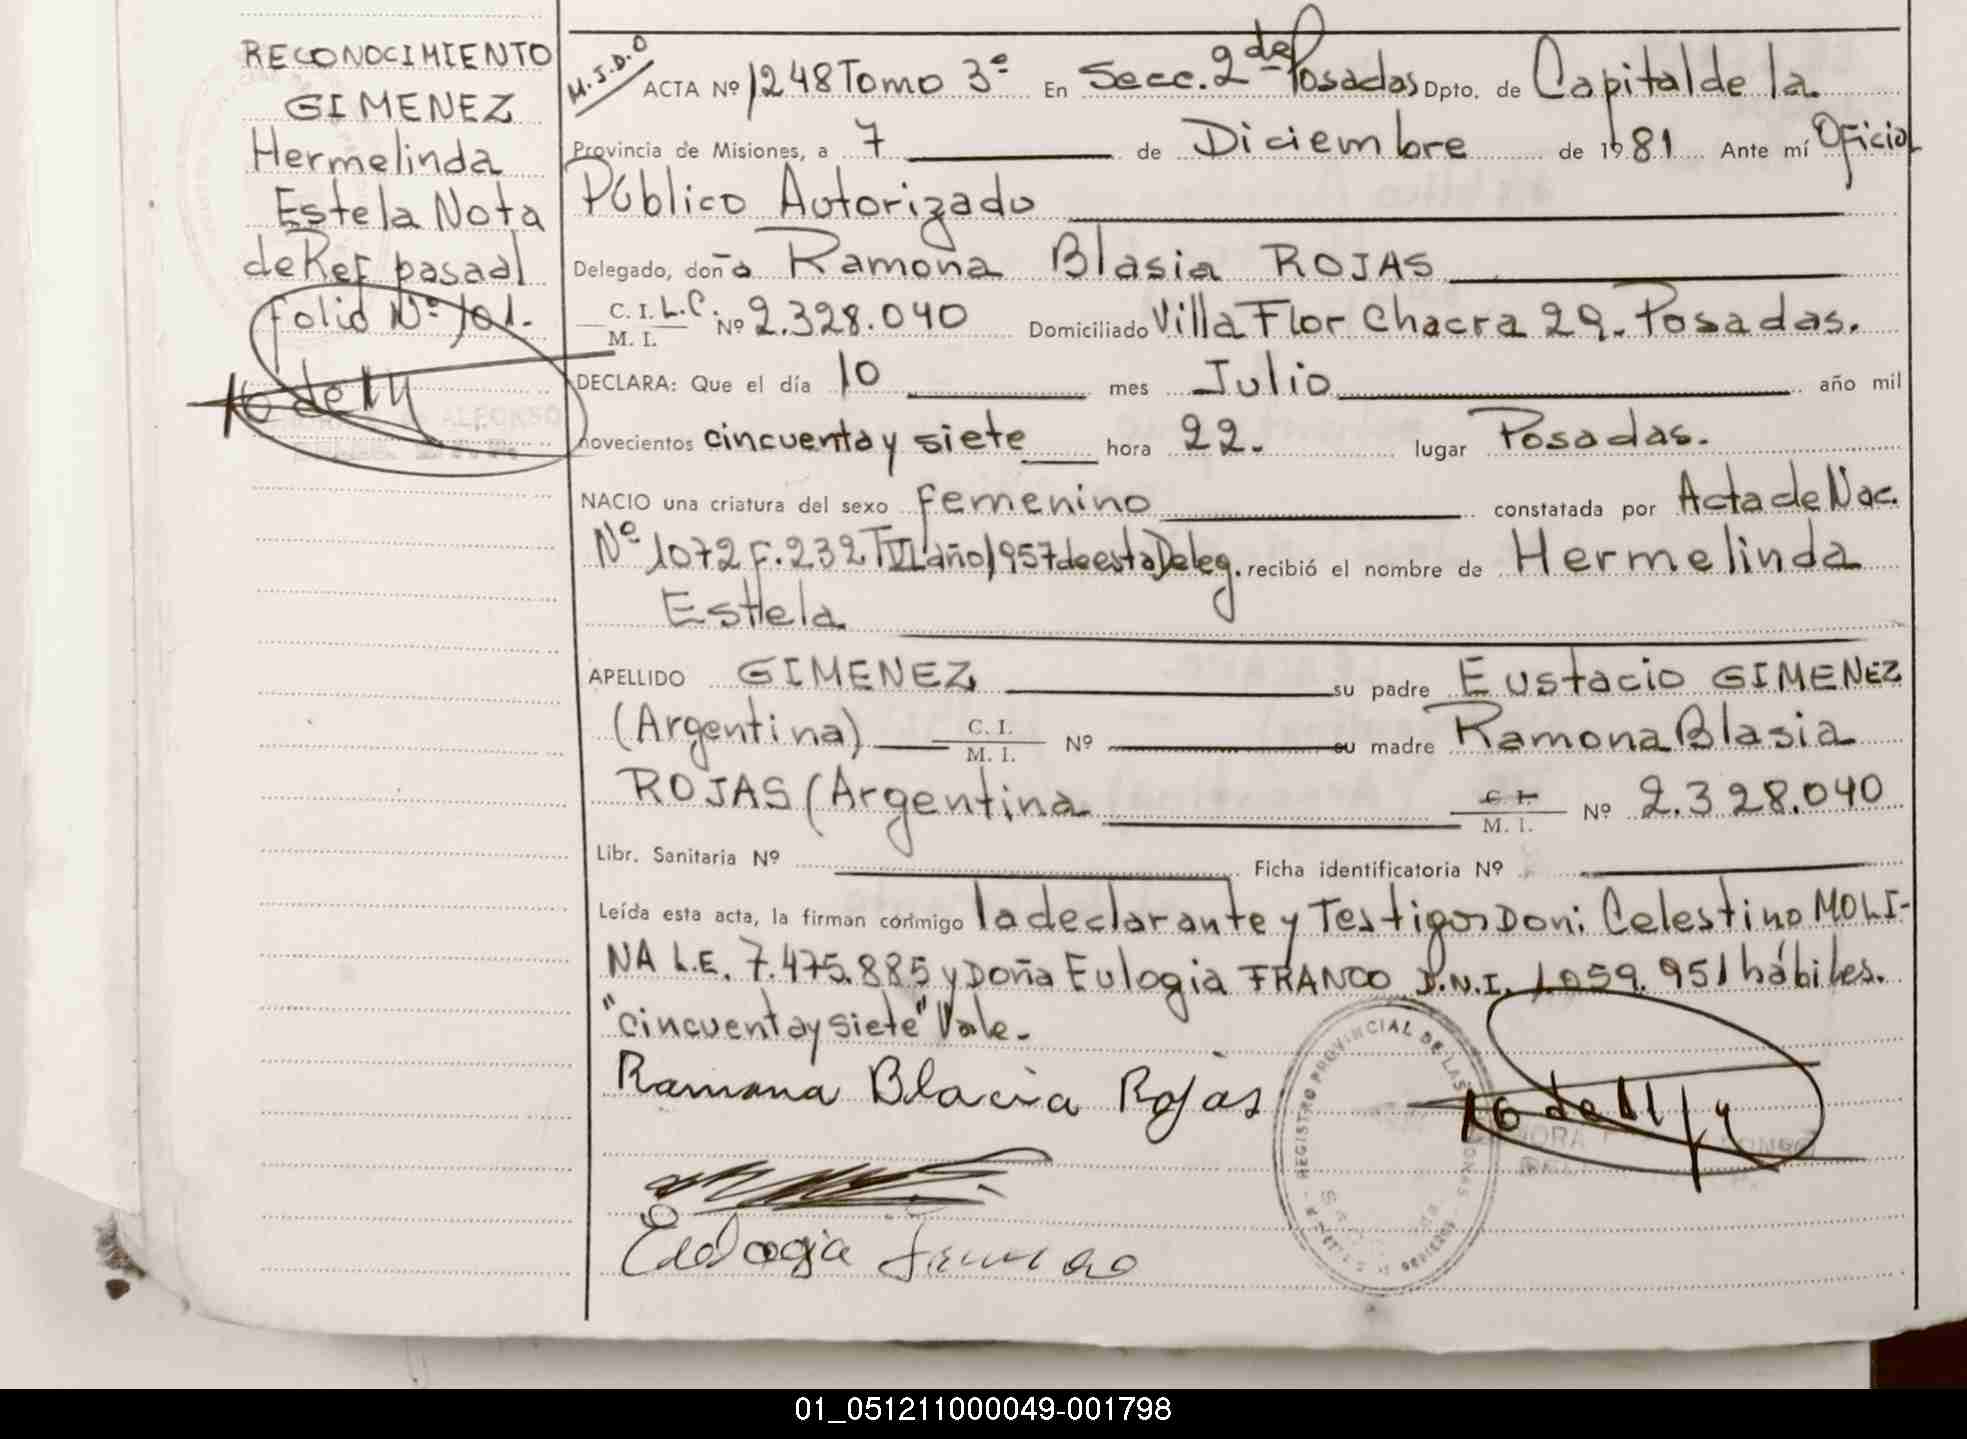 RECONOCIMIENTO
GIMENEZ
Hermelinda
Estela Nota
de Ref pasa al
folio Nº 101.
M.J.D.O
ACTA Nº 1248 Tomo 3º En Secc. 2da de Posadas Dpto. de Capital de la
Provincia de Misiones, a 7 de Diciembre de 1981 Ante mí Oficial
Público Autorizado
Delegado, doña Ramona Blasia ROJAS
C. I. L.C. Nº 2.328.040 Domiciliado Villa Flor Chacra 29. Posadas.
M. I.
DECLARA: Que el día 10 mes Julio año mil
novecientos cincuenta y siete hora 22. lugar Posadas.
NACIO una criatura del sexo femenino constatada por Acta de Nac.
Nº 1072 F. 232 T VI año 1957 de esta Deleg. recibió el nombre de Hermelinda
Estela
APELLIDO GIMENEZ su padre Eustacio GIMENEZ
(Argentina) C. I. M. I. Nº su madre Ramona Blasia
ROJAS (Argentina C. I. M. I. Nº 2.328.040
Libr. Sanitaria Nº Ficha identificatoria Nº
Leída esta acta, la firman conmigo la declarante y Testigos Don: Celestino MOLI-
NA L.E. 7.475.885 y Doña Eulogia FRANCO D.N.I. 1.059.951 hábiles.
"cincuenta y siete" Vale.-
Ramona Blacia Rojas
Eulogia Franco
REGISTRO PROVINCIAL DE LAS PERSONAS
01_051211000049-001798